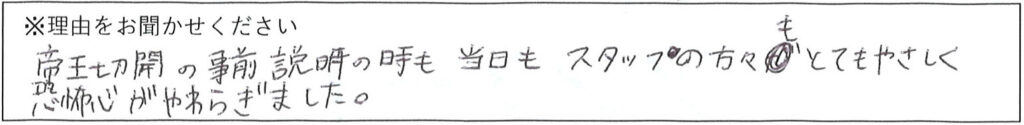 ※理由をお聞かせください
帝王切開の事前説明の時も 当日も スタッフの方々もとてもやさしく
恐怖心がやわらぎました。